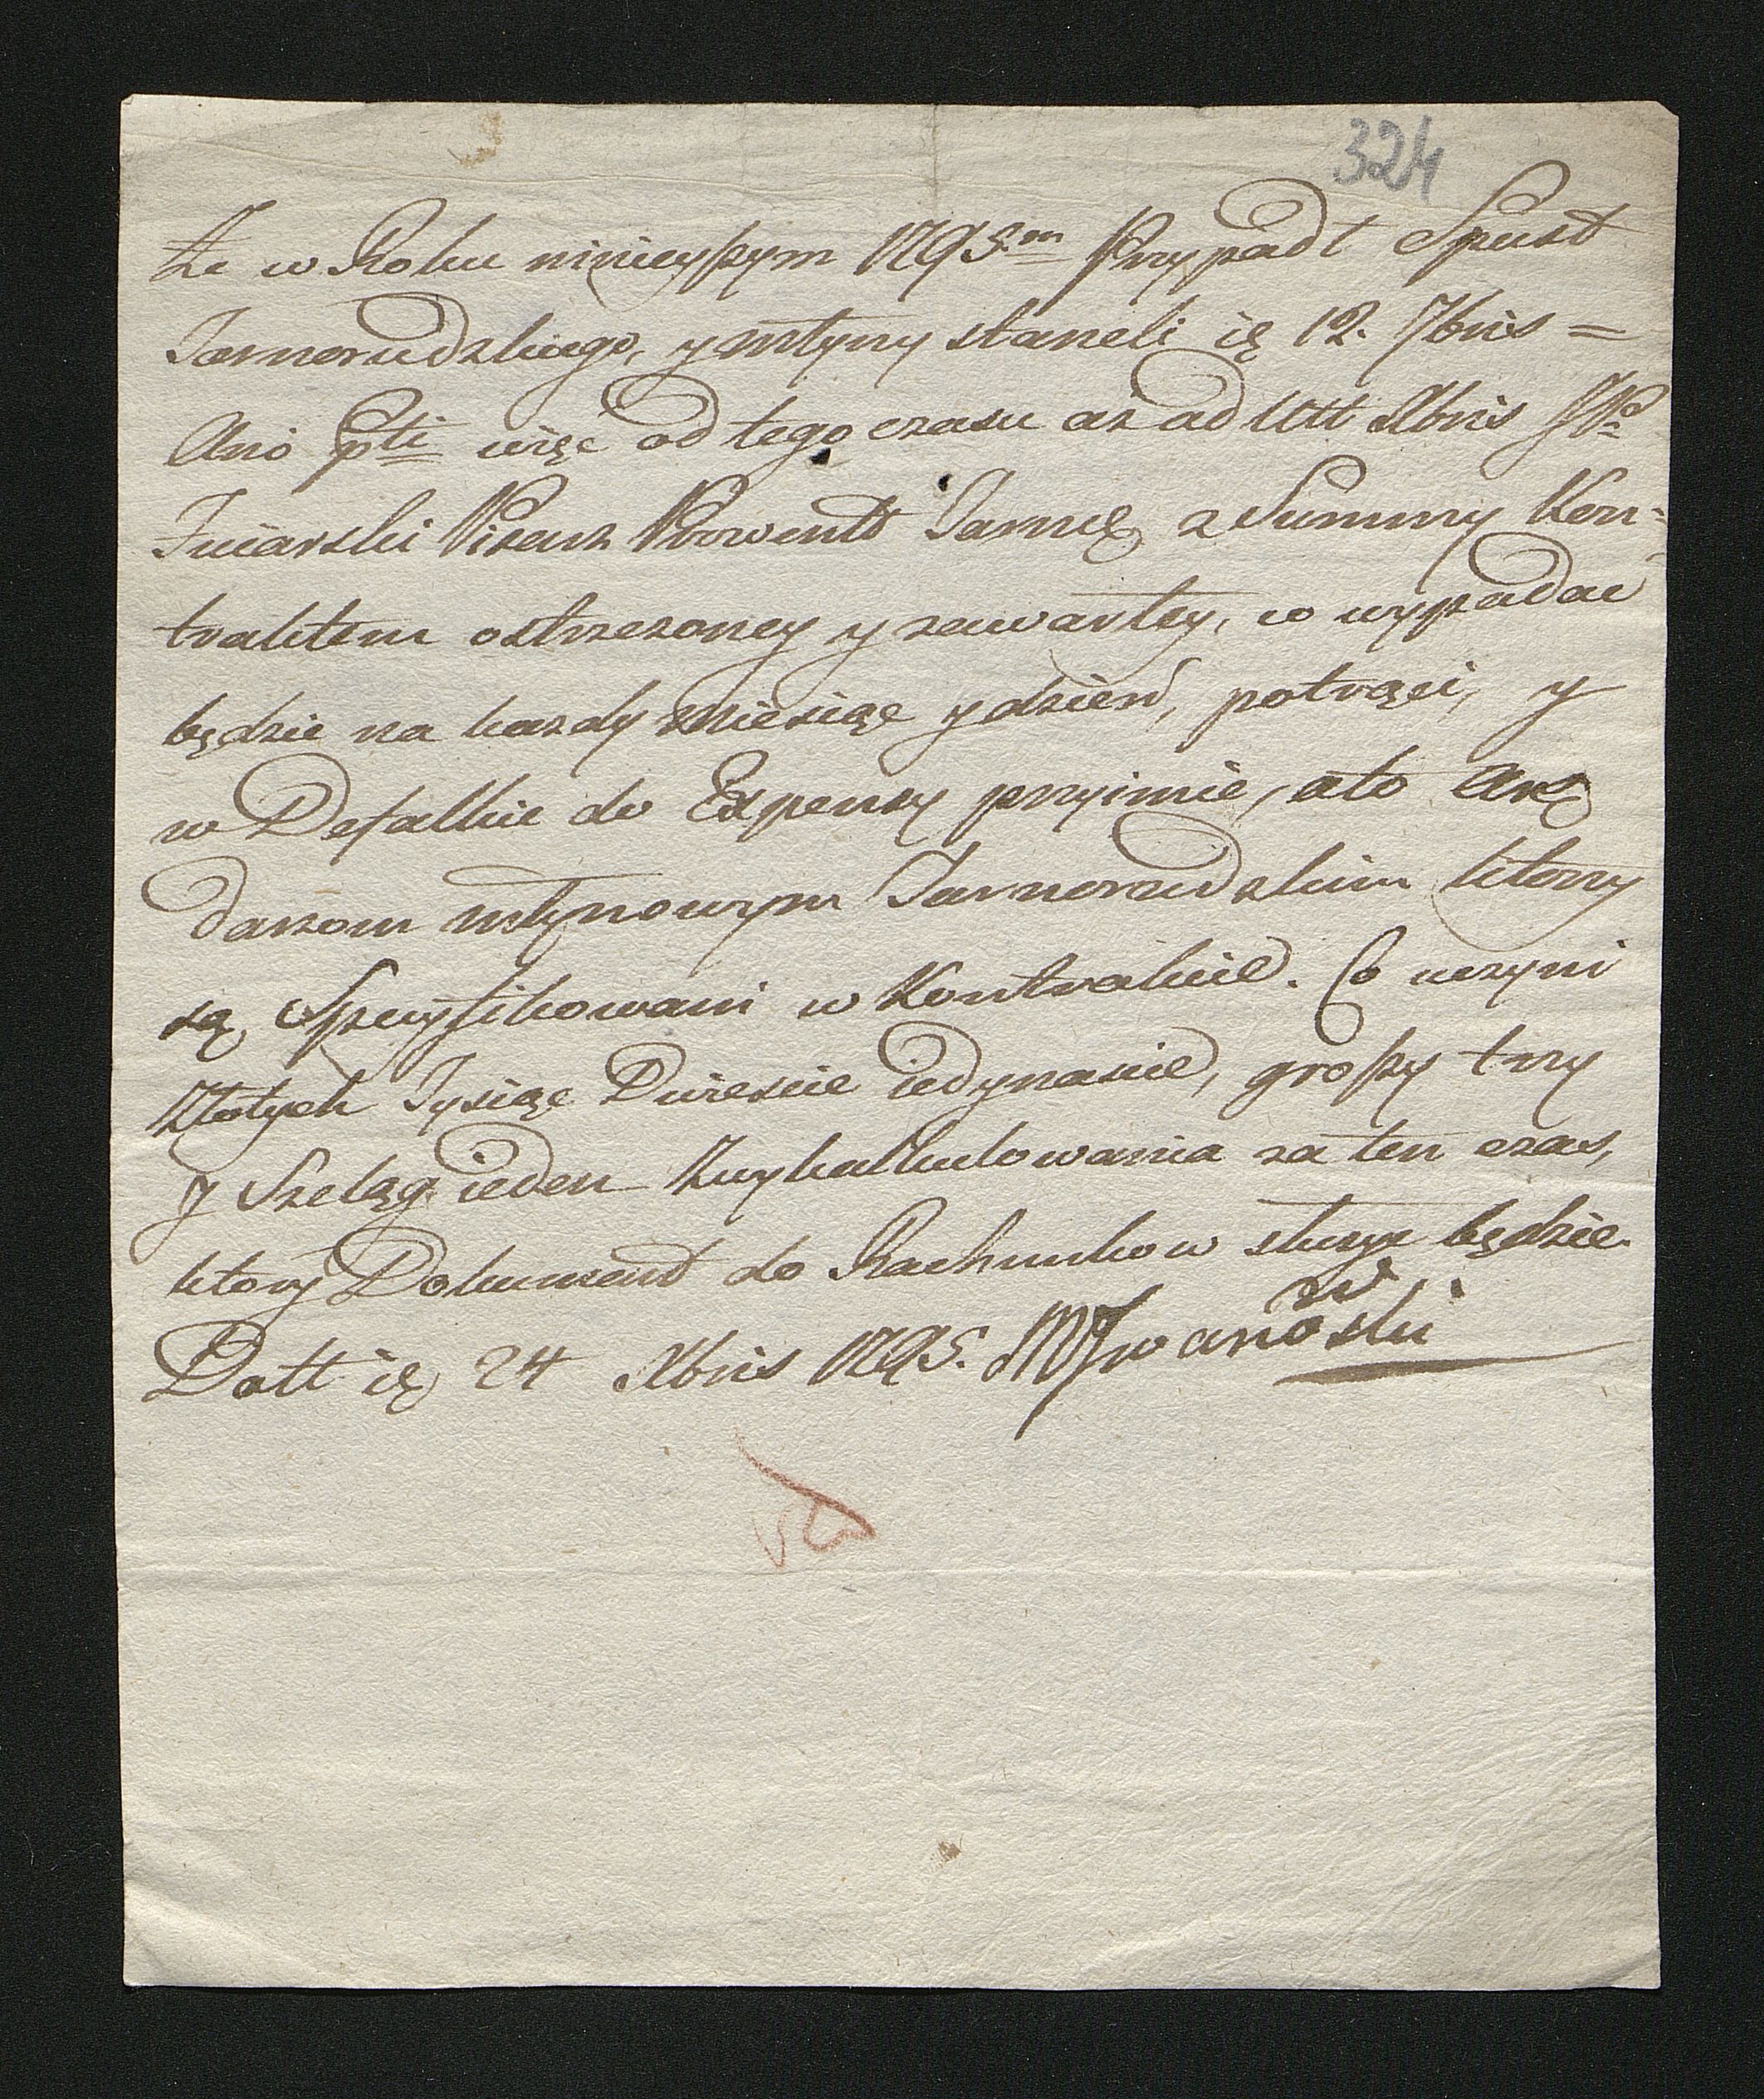 324
Że w Roku ninieyszym 1795.m Przypadł Spust
Tarnorudzkiego, y młyny staneli ię 12. 7bris =
Ano pti więc od tego czasu aż ad Ult Xbris JP
Pisarz Prowentt Tarnę z Summy Kon-
traktem ostrzezoney y zawartey, co wypadac
będzie na kazdy miesiąc y dzien, potrąci, y
w Defalkie do Expensy przyimie, a to Arę
darzom młynowym Tarnorudzkim ktorzy
są Specyfikowani w Kontrakcie. Co uczyni
Złotych Tysiąc Dwiescie iedynascie, groszy trzy
y Szeląg ieden Zwykalkulowania za ten czas,
ktory Dokument do Rachunkow służyc będzie
Datt ię 24 Xbris 1795. MIwanowski